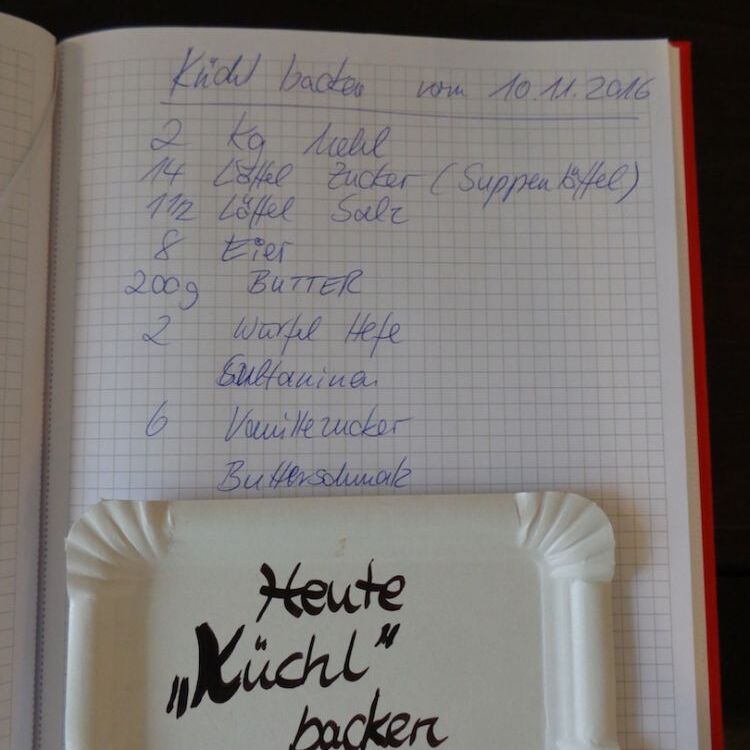 Küchl backen vom 10.11.2016
2 Kg Mehl
14 Löffel Zucker (Suppenlöffel)
1 1/2 Löffel Salz
8 Eier
200g BUTTER
2 Würfel Hefe
Sultaninen
6 Vanillezucker
Butterschmalz
Heute
„Küchl"
backen